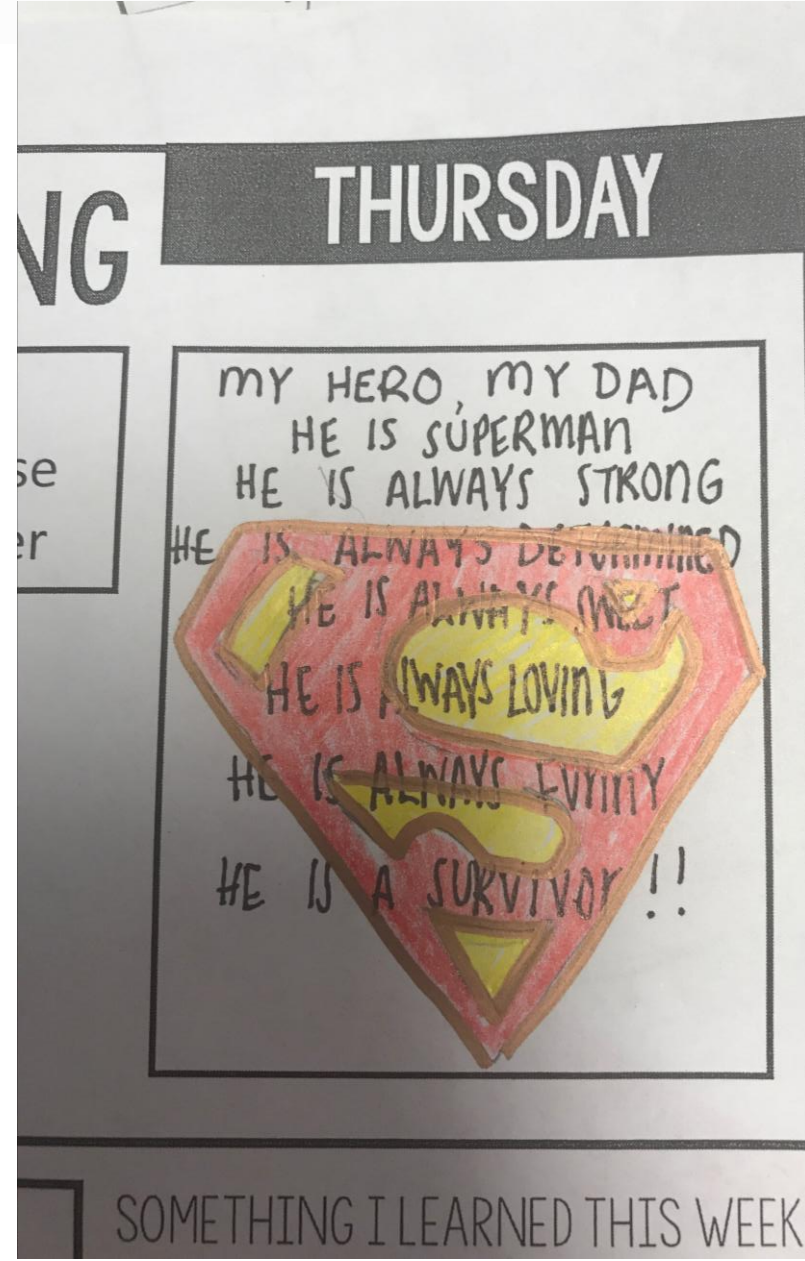 NG
THURSDAY
se
er
MY HERO, MY DAD
HE IS SUPERMAN
HE IS ALWAYS STRONG
HE IS ALWAYS DETERMINED
HE IS ALWAYS SWEET
HE IS ALWAYS LOVING
HE IS ALWAYS FUNNY
HE IS A SURVIVOR!!
SOMETHING I LEARNED THIS WEEK